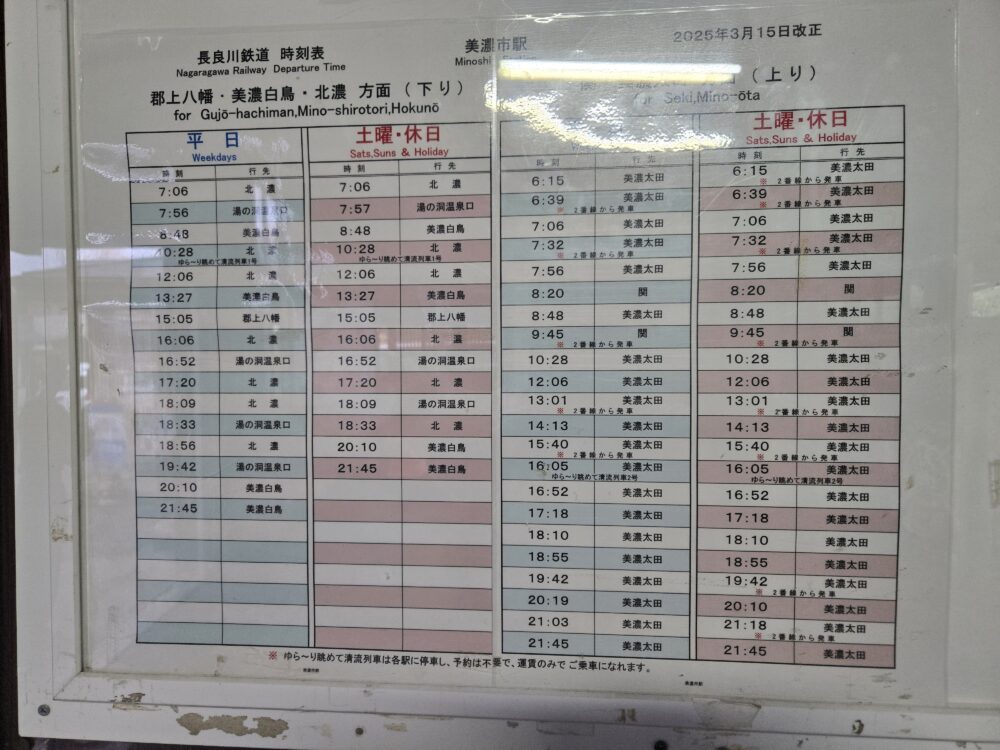 長良川鉄道 時刻表
Nagaragawa Railway Departure Time
美濃市駅
Minoshi
2025年3月15日改正
郡上八幡・美濃白鳥・北濃 方面 (下り)
for Gujō-hachiman,Mino-shirotori,Hokunō
(上り)
for Seki,Mino-ōta
平日
Weekdays
時刻 行先
7:06 北濃
7:56 湯の洞温泉口
8:48 美濃白鳥
10:28 北濃
ゆら～り眺めて清流列車1号
12:06 北濃
13:27 美濃白鳥
15:05 郡上八幡
16:06 北濃
16:52 湯の洞温泉口
17:20 北濃
18:09 北濃
18:33 湯の洞温泉口
18:56 北濃
19:42 湯の洞温泉口
20:10 美濃白鳥
21:45 美濃白鳥
土曜・休日
Sats,Suns & Holiday
時刻 行先
7:06 北濃
7:57 湯の洞温泉口
8:48 美濃白鳥
10:28 北濃
ゆら～り眺めて清流列車1号
12:06 北濃
13:27 美濃白鳥
15:05 郡上八幡
16:06 北濃
16:52 湯の洞温泉口
17:20 北濃
18:09 湯の洞温泉口
18:33 北濃
20:10 美濃白鳥
21:45 美濃白鳥
時刻 行先
6:15 美濃太田
6:39 美濃太田
※ 2番線から発車
7:06 美濃太田
7:32 美濃太田
※ 2番線から発車
7:56 美濃太田
8:20 関
8:48 美濃太田
9:45 関
※ 2番線から発車
10:28 美濃太田
12:06 美濃太田
13:01 美濃太田
※ 2番線から発車
14:13 美濃太田
15:40 美濃太田
※ 2番線から発車
16:05 美濃太田
ゆら～り眺めて清流列車2号
16:52 美濃太田
17:18 美濃太田
18:10 美濃太田
18:55 美濃太田
19:42 美濃太田
20:19 美濃太田
21:03 美濃太田
21:45 美濃太田
土曜・休日
Sats,Suns & Holiday
時刻 行先
6:15 美濃太田
※ 2番線から発車
6:39 美濃太田
※ 2番線から発車
7:06 美濃太田
7:32 美濃太田
※ 2番線から発車
7:56 美濃太田
8:20 関
8:48 美濃太田
9:45 関
※ 2番線から発車
10:28 美濃太田
12:06 美濃太田
13:01 美濃太田
※ 2番線から発車
14:13 美濃太田
15:40 美濃太田
※ 2番線から発車
16:05 美濃太田
ゆら～り眺めて清流列車2号
16:52 美濃太田
17:18 美濃太田
18:10 美濃太田
18:55 美濃太田
19:42 美濃太田
※ 2番線から発車
20:10 美濃太田
21:18 美濃太田
※ 2番線から発車
21:45 美濃太田
※ ゆら～り眺めて清流列車は各駅に停車し、予約は不要で、運賃のみでご乗車になれます。
美濃市駅
美濃市駅